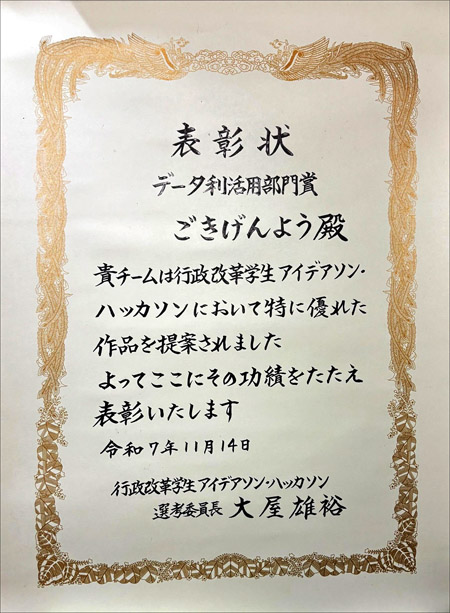 表彰状
データ利活用部門賞
ごきげんよう殿
貴チームは行政改革学生アイデアソン・
ハッカソンにおいて特に優れた
作品を提案されました
よってここにその功績をたたえ
表彰いたします
令和7年11月14日
行政改革学生アイデアソン・ハッカソン
選考委員長 大屋雄裕